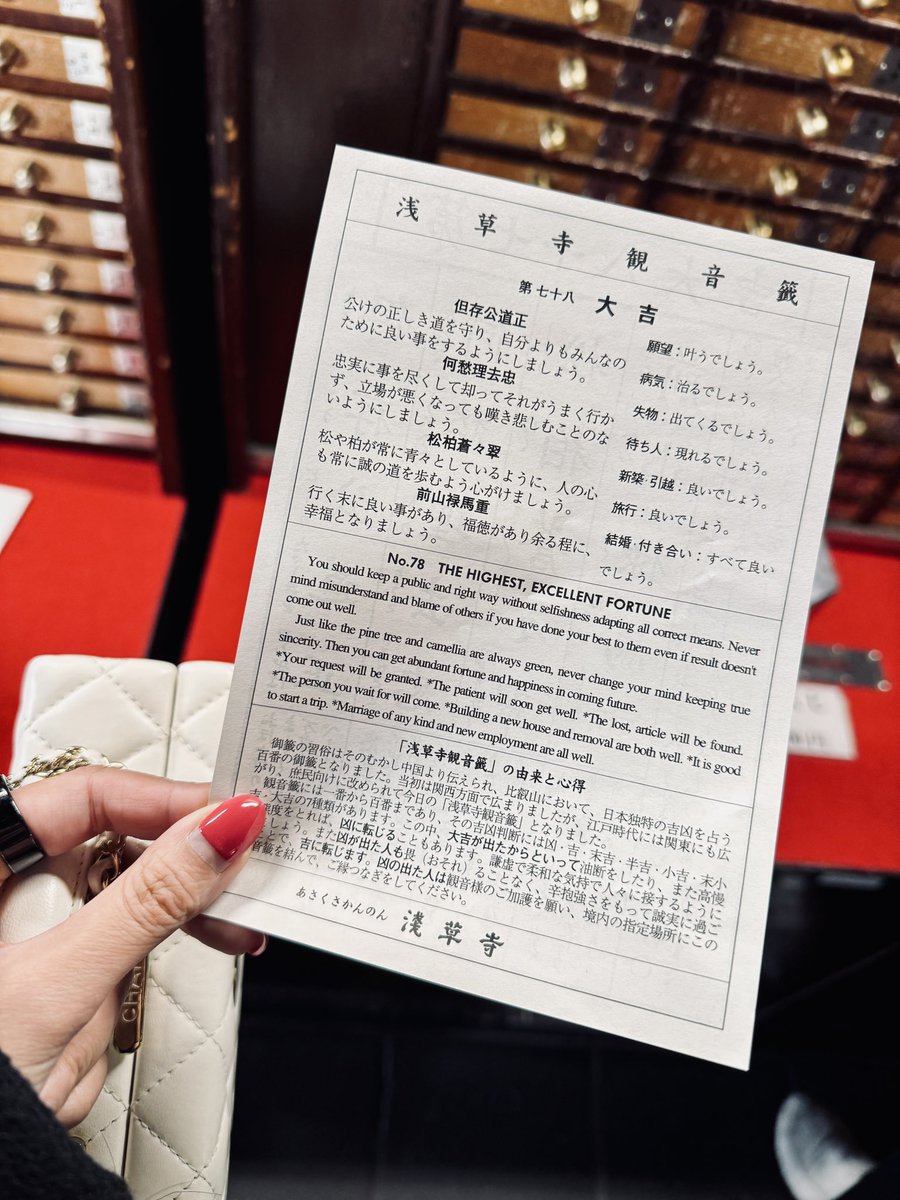 浅草寺観音籤
第七十八 大吉
但存公道正
公けの正しき道を守り、自分よりもみんなの
ために良い事をするようにしましょう。
何愁理去忠
忠実に事を尽くして却ってそれがうまく行か
ず、立場が悪くなっても嘆き悲しむことのな
いようにしましょう。
松柏蒼々翠
松や柏が常に青々としているように、人の心
も常に誠の道を歩むよう心がけましょう。
前山禄馬重
行く末に良い事があり、福徳があり余る程に、
幸福となりましょう。
願望：叶うでしょう。
病気：治るでしょう。
失物：出てくるでしょう。
待ち人：現れるでしょう。
新築・引越：良いでしょう。
旅行：良いでしょう。
結婚・付き合い：すべて良い
でしょう。
No.78 THE HIGHEST, EXCELLENT FORTUNE
You should keep a public and right way without selfishness adapting all correct means. Never
mind misunderstand and blame of others if you have done your best to them even if result doesn't
come out well.
Just like the pine tree and camellia are always green, never change your mind keeping true
sincerity. Then you can get abundant fortune and happiness in coming future.
*Your request will be granted. *The patient will soon get well. *The lost, article will be found.
*The person you wait for will come. *Building a new house and removal are both well. *It is good
to start a trip. *Marriage of any kind and new employment are all well.
「浅草寺観音籤」の由来と心得
御籤の習俗はそのむかし中国より伝えられ、比叡山において、日本独特の吉凶を占う
百番の御籤となりました。当初は関西方面で広まりましたが、江戸時代には関東にも広
がり、庶民向けに改められて今日の「浅草寺観音籤」となりました。
観音籤には一番から百番まであり、その吉凶判断には凶・吉・末吉・半吉・小吉・末小
吉・大吉の7種類があります。この中、大吉が出たからといって油断をしたり、また高慢
な態度をとれば、凶に転じることもあります。謙虚で柔和な気持で人々に接するように
しましょう。また凶が出た人も畏（おそれ）ることなく、辛抱強さをもって誠実に過ご
すことで、吉に転じます。凶の出た人は観音様のご加護を願い、境内の指定場所にこの
観音籤を結んで、ご縁つなぎをしてください。
あさくさかんのん 浅草寺
CHA